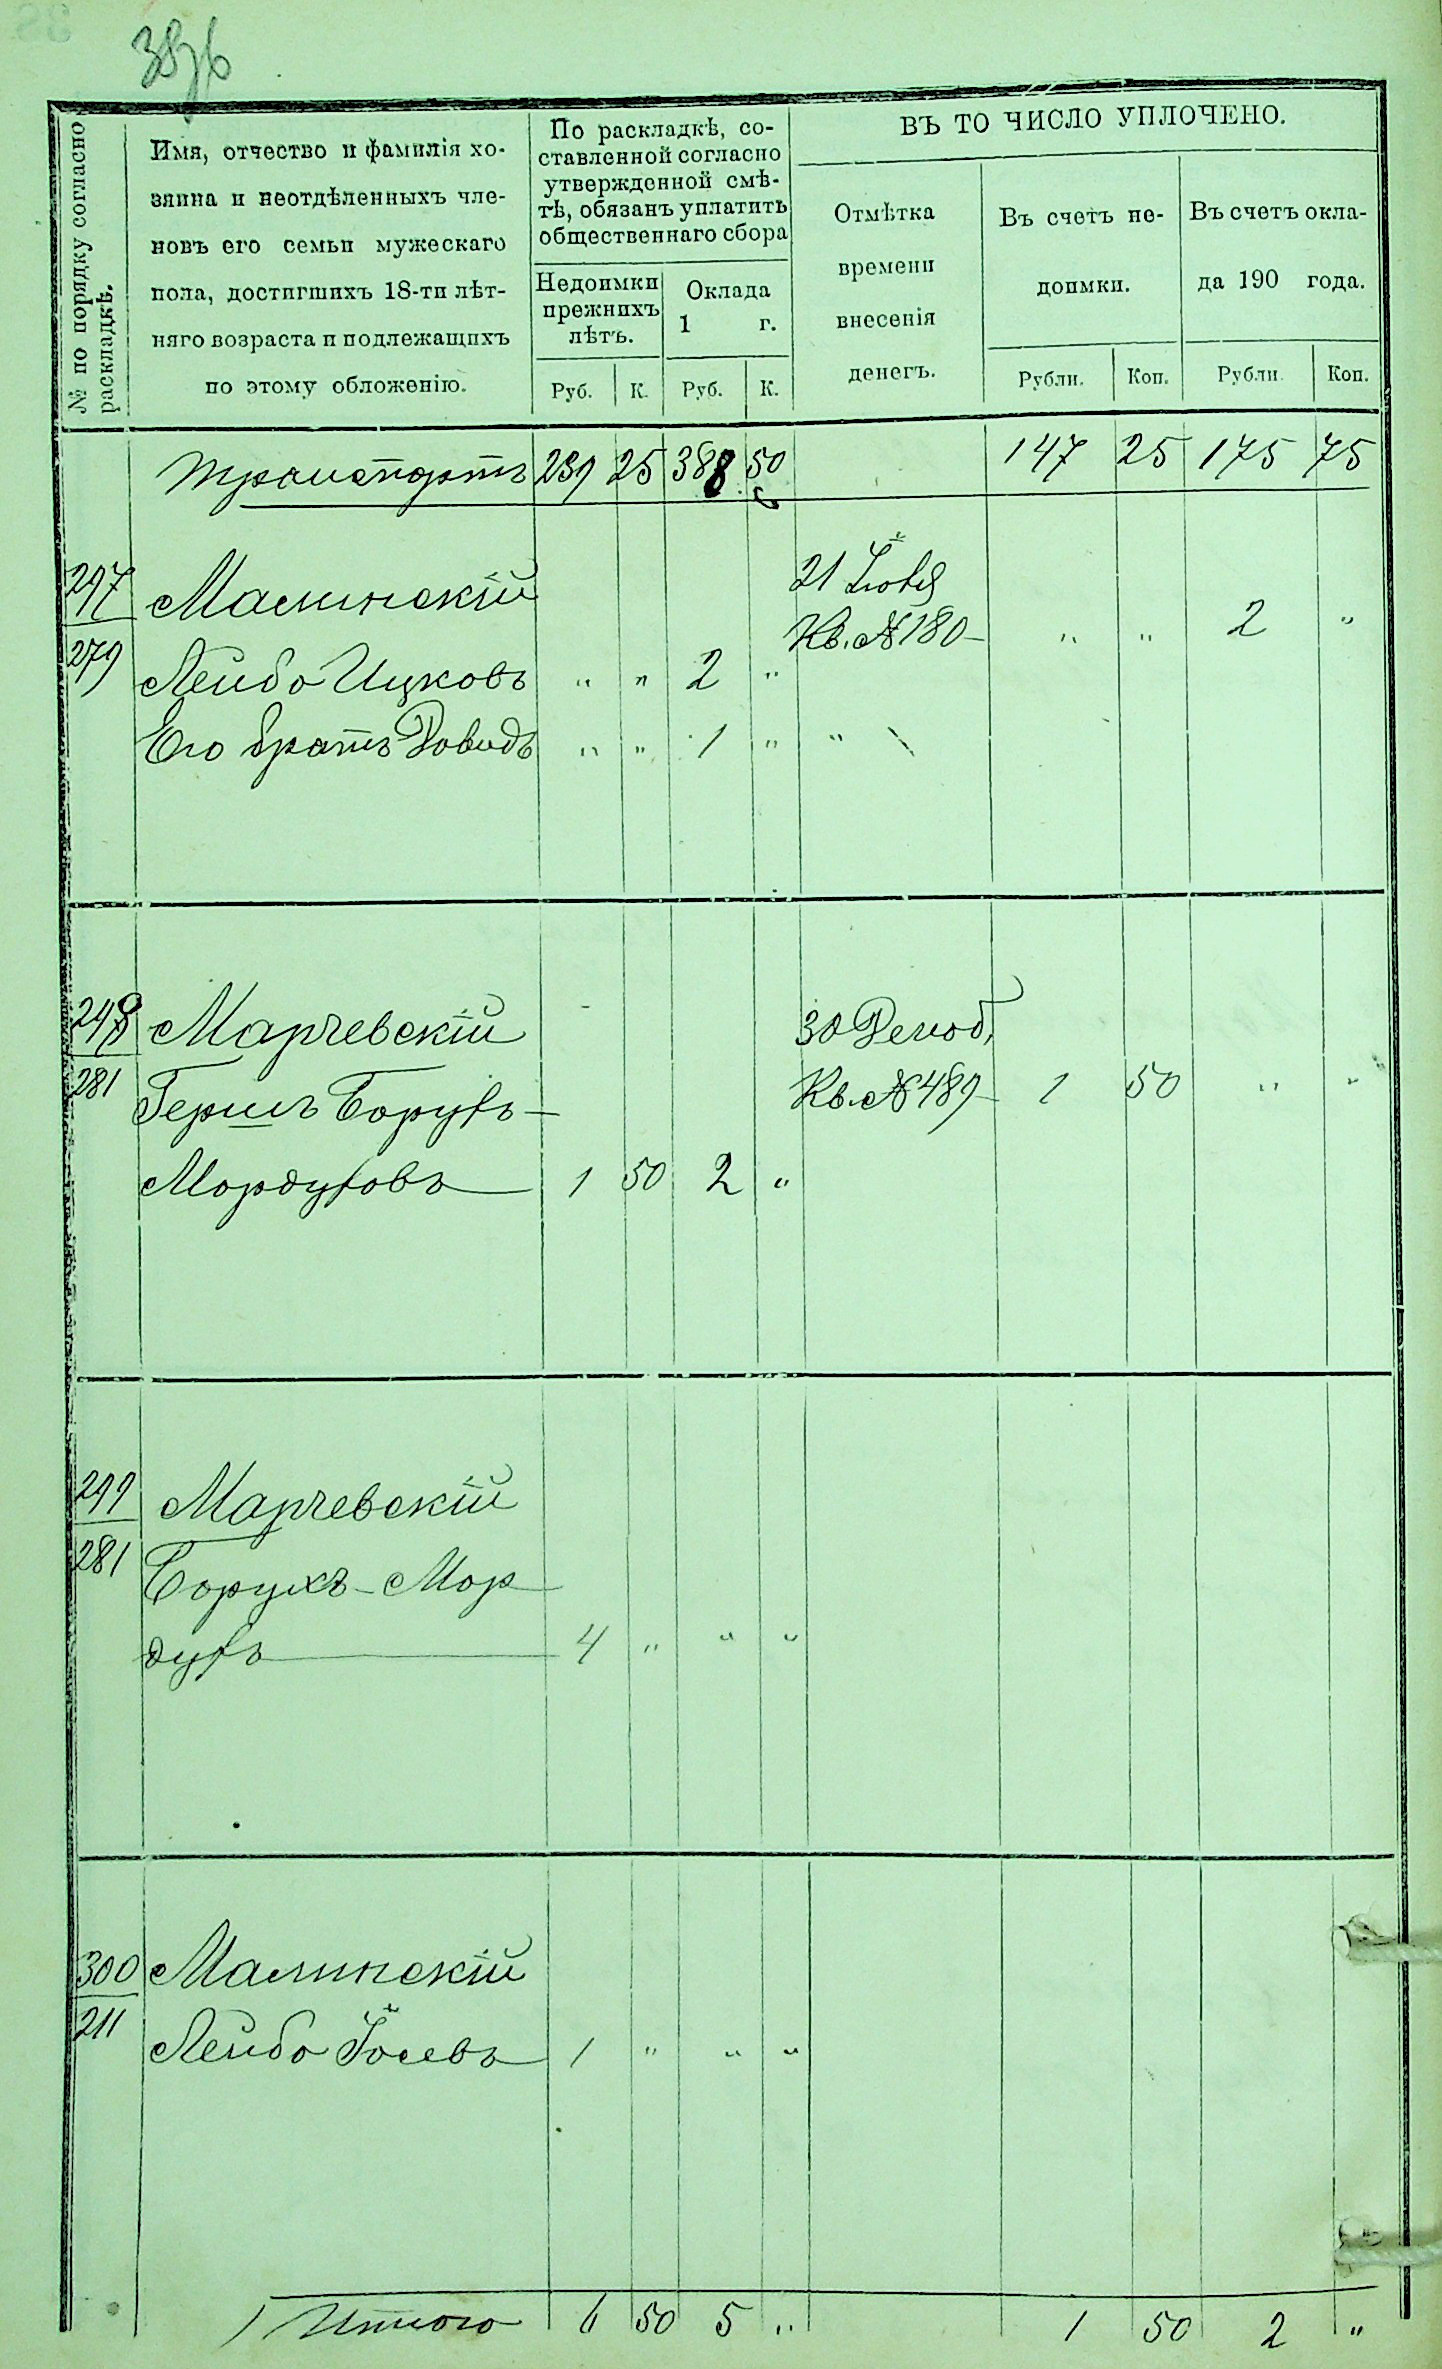 № по порядку согласно
раскладкѣ.
Имя, отчество и фамилія хо-
зяина и неотдѣленныхъ чле-
новъ его семьи мужескаго
пола, достигшихъ 18-ти лѣт-
няго возраста и подлежащихъ
по этому обложенію.
По раскладкѣ, со-
ставленной согласно
утвержденной смѣ-
тѣ, обязанъ уплатить
общественнаго сбора
Недоимки
прежнихъ
лѣтъ.
Оклада
1 г.
Руб. К. Руб. К.
ВЪ ТО ЧИСЛО УПЛОЧЕНО.
Отмѣтка
времени
внесенія
денегъ.
Въ счетъ не-
доимки.
Рубли. Коп.
Въ счетъ окла-
да 190 года.
Рубли. Коп.
Транспортъ 239 25 388 50 147 25 175 75
297 Малинскій 21 Іюля
Кв. № 180 " " 2 "
279 Лейбо Ицковъ " " 2 "
Его братъ Довидъ " " 1 " "
298 Марчевскій 30 Декаб,
281 Гершъ Борухъ- Кв. № 489 1 50 " "
Мордуховъ 1 50 2 "
299 Марчевскій
281 Борухъ-Мор
духъ 4 " " "
300 Малинскій
211 Лейбо Іосевъ 1 " " "
Итого 6 50 5 " 1 50 2 "